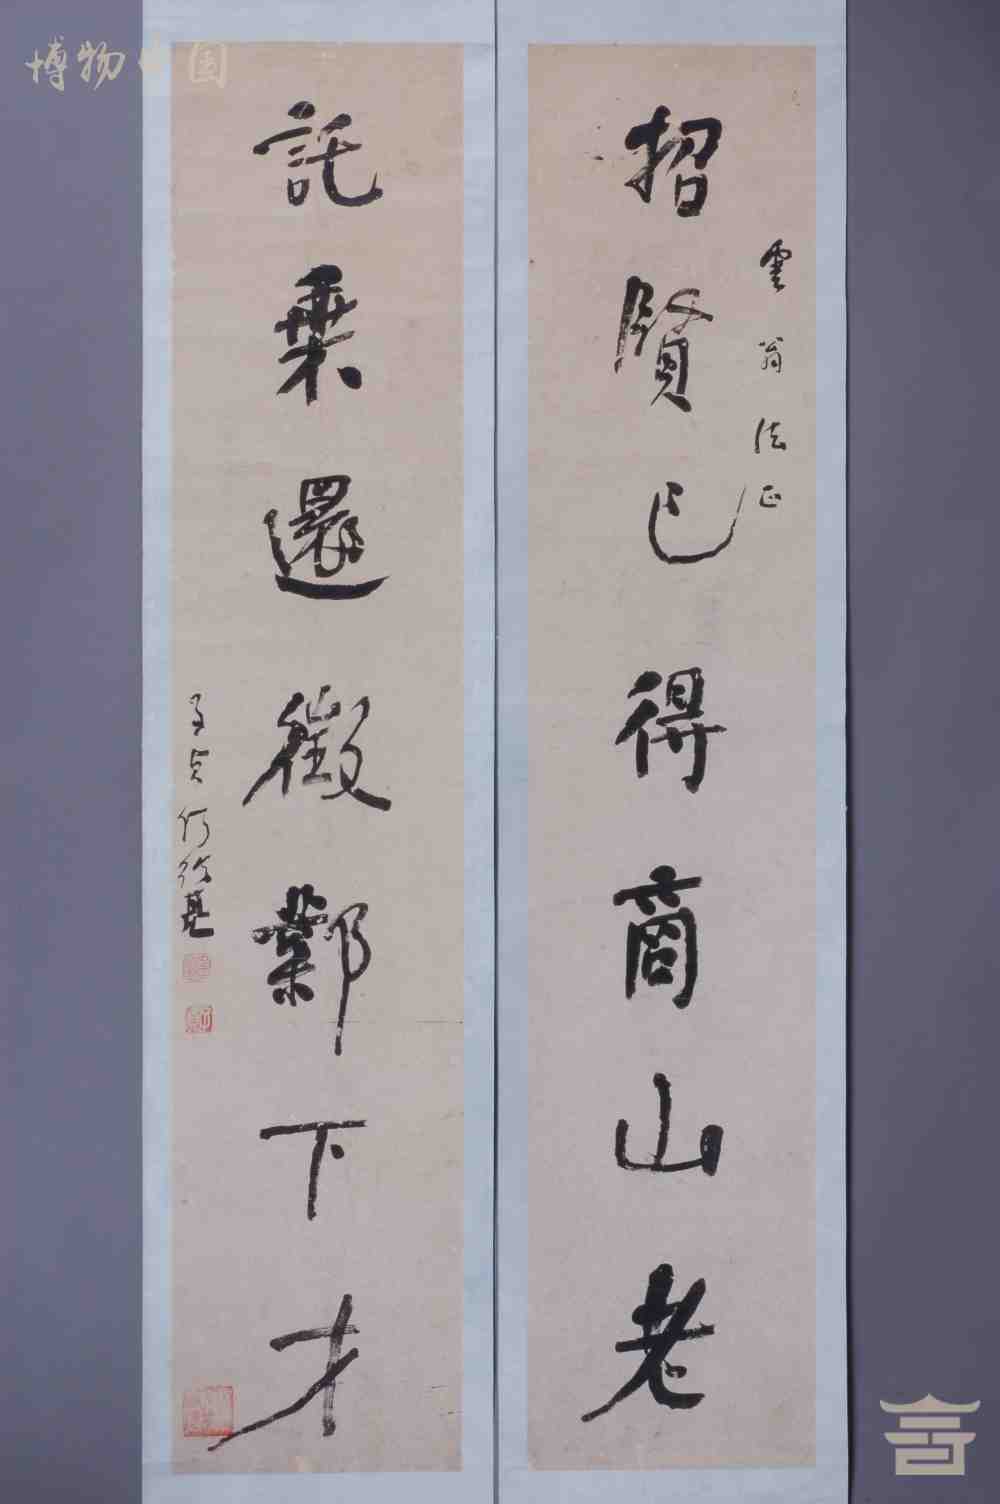 雲翁法正
招賢已得商山老
託乘還徵鄴下才
子貞何紹基
博物中国